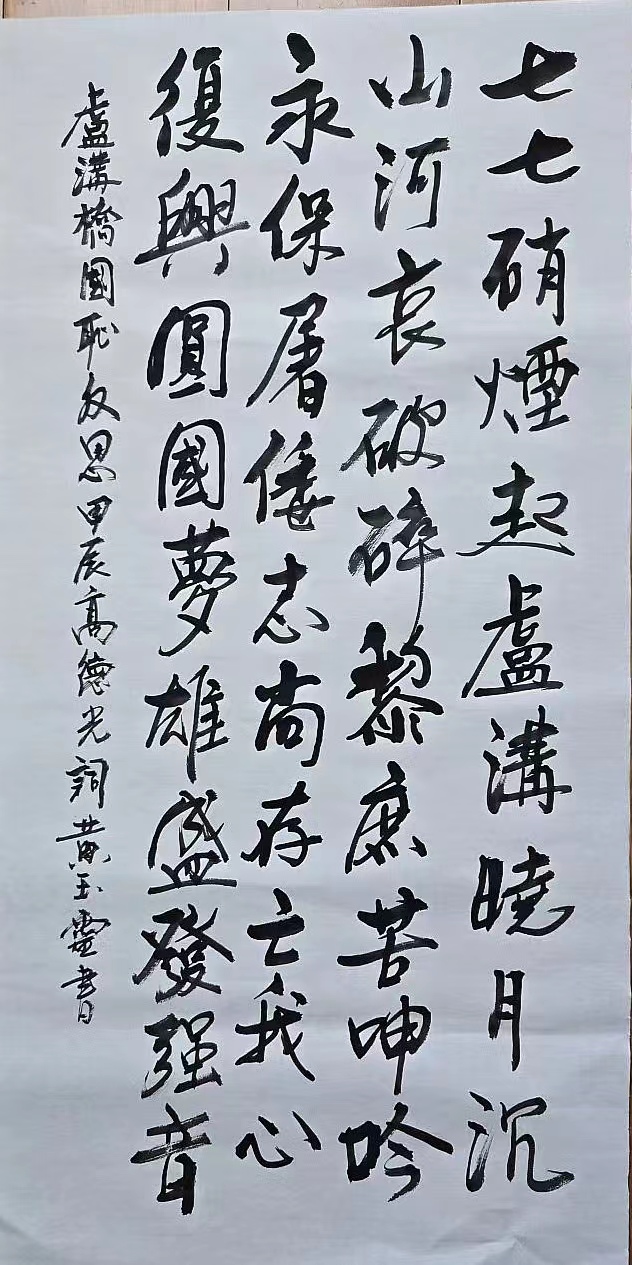 七七硝煙起盧溝曉月沉
山河哀破碎黎庶苦呻吟
永保屠倭志尚存亡我心
復興圓國夢雄盛發强音
盧溝橋國恥反思甲辰高德光詞黄玉靈書